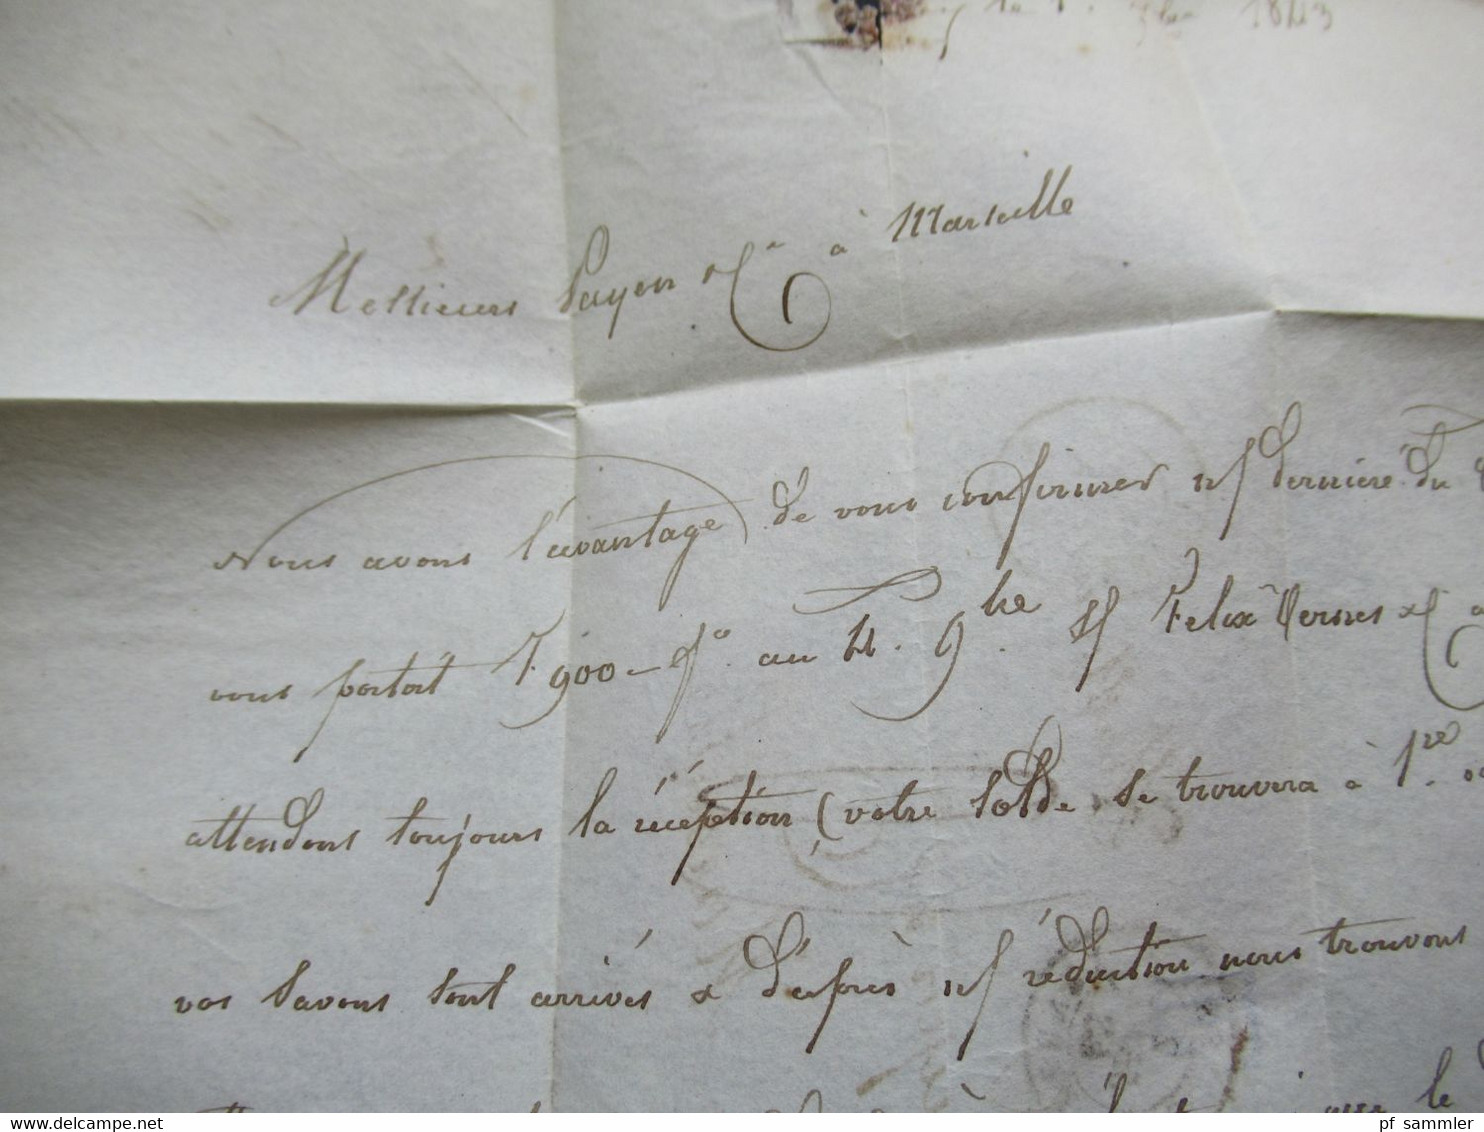 le 1843
Messieurs Payen & Cie à Marseille
Nous avons l'avantage de vous confirmer n/ dernière du
vous portait F 900 – fo. au 4. 9bre. s/ Felix Vernes & C
attendons toujours la réception (votre solde se trouvera à 1re.
vos savons sont arrivés & d'après n/ réduction nous trouvons
le
pf_sammler